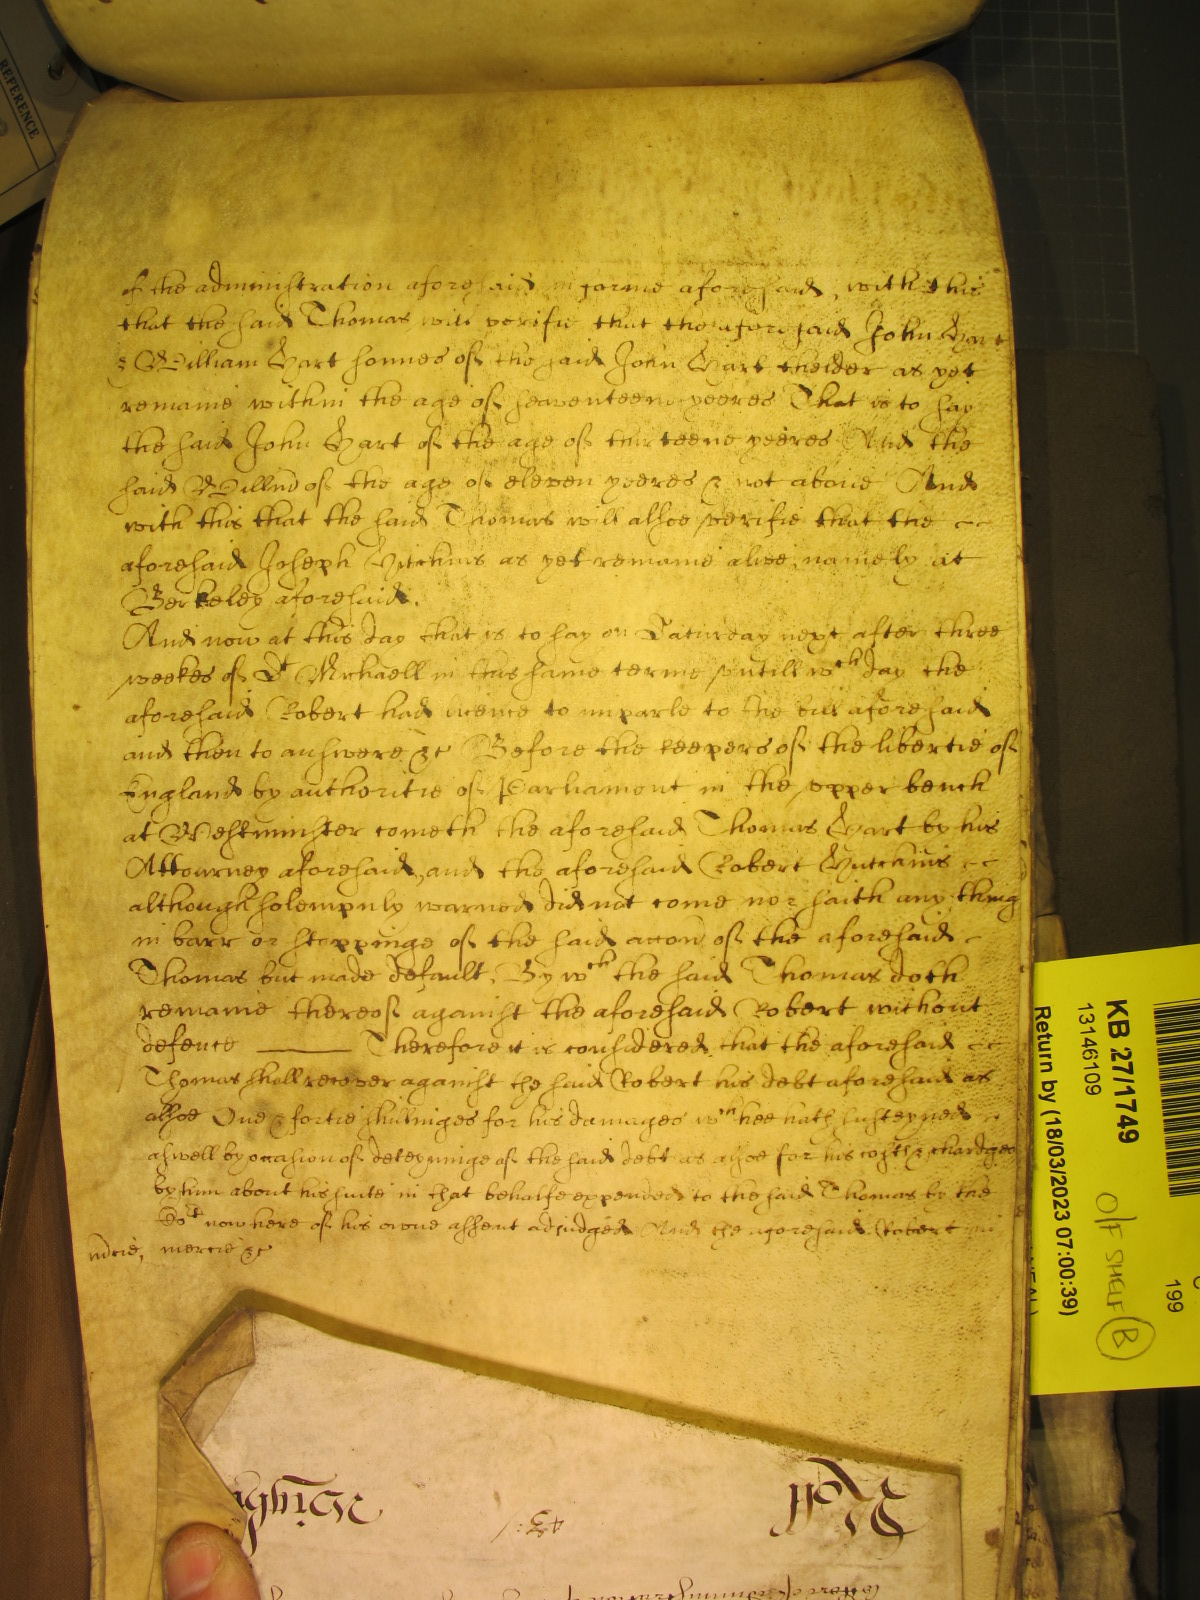 of the administration aforesaid in forme aforesaid, with this
that the said Thomas will verifie that the aforesaid John Hart
& William Hart sonnes of the said John Hart thelder as yet
remaine within the age of seaventeene yeeres That is to say
the said John Hart of the age of thirteene yeeres And the
said Willm of the age of eleven yeeres & not above And
with this that the said Thomas will alsoe verifie that the
aforesaid Joseph Hutchins as yet remaine alive, namely at
Berkeley aforesaid.
And now at this day that is to say on Saturday next after three
weekes of St Michaell in this same terme untill wch day the
aforesaid Robert had licence to imparle to the bill aforesaid
and then to answere &c Before the keepers of the libertie of
England by authoritie of Parliament in the upper bench
at Westminster cometh the aforesaid Thomas Hart by his
Attourney aforesaid, and the aforesaid Robert Hutchins
although solempnly warned did not come nor saith any thing
in barr or stoppinge of the said accon of the aforesaid
Thomas but made default, By wch the said Thomas doth
remaine thereof against the aforesaid Robert without
defence Therefore it is considered that the aforesaid
Thomas shall recover against the said Robert his debt aforesaid as
alsoe One & fortie shillinges for his damages wch hee hath susteyned
aswell by occasion of deteyninge of the said debt as alsoe for his costs & chardges
by him about his suite in that behalfe expended to the said Thomas by the
Cot now here of his owne assent adjudged And the aforesaid Robert in
mcie, mercie &c
REFERENCE
KB 27/1749
13146109
Return by (18/03/2023 07:00:39)
O/F SHELF B
199
Roll